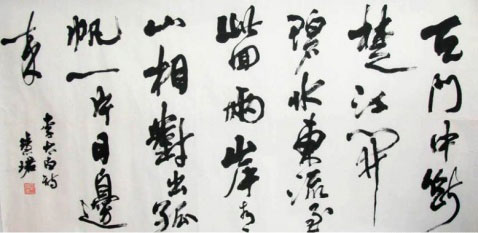 天門中斷
楚江開
碧水東流至
此回兩岸青
山相對出孤
帆一片日邊
來
李太白詩